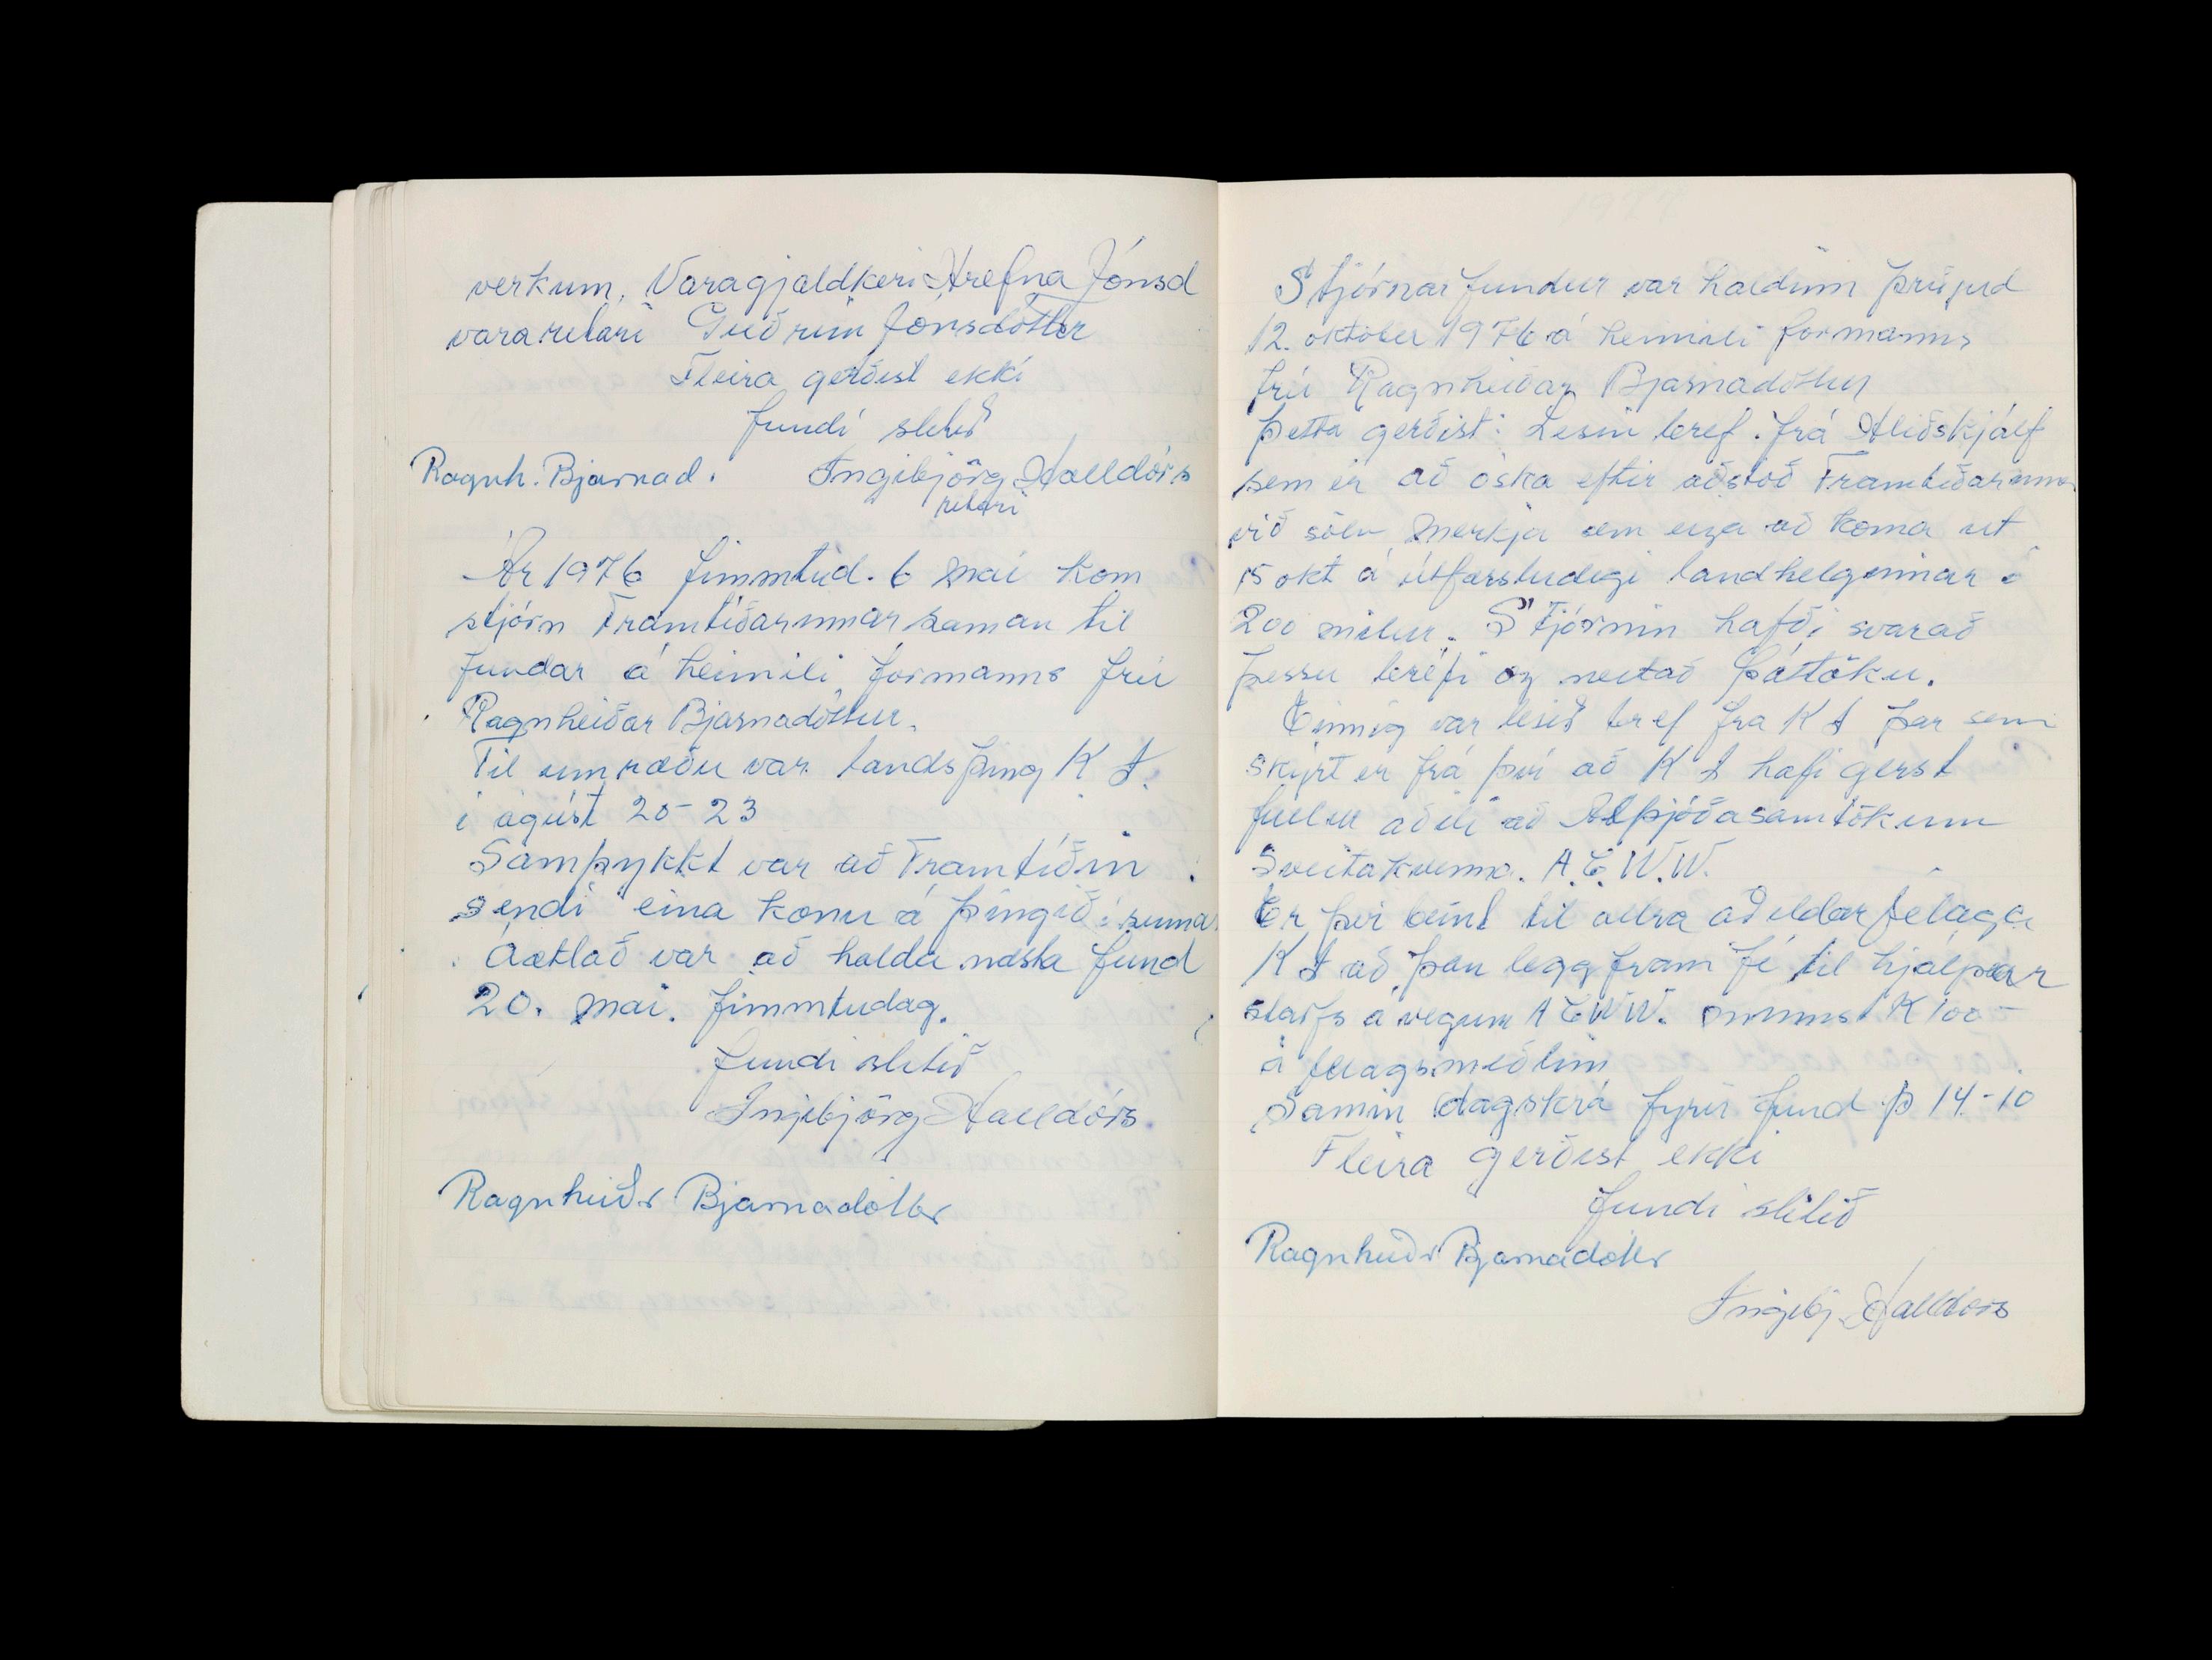 verkum. Varagjaldkeri Hrefna Jónsd
vararitari Guðrún Jónsdóttir
Fleira gerðist ekki
fundi slitið
Ragnh. Bjarnad. Ingibjörg Halldórs
ritari
Ár 1976 fimmtud. 6 maí kom
stjórn Framtíðarinnar saman til
fundar á heimili formanns frú
Ragnheiðar Bjarnadóttur.
Til umræðu var landsþing K Í.
í ágúst 20-23
Samþykkt var að Framtíðin
sendi eina konu á þingið í sumar
Áætlað var að halda næsta fund
20. maí. fimmtudag.
fundi slitið
Ingibjörg Halldórs.
Ragnheiðr Bjarnadóttir
Stjórnar fundur var haldinn þriðjud
12. október 1976 á heimili formanns
frú Ragnheiðar Bjarnadóttur
Þetta gerðist: Lesin bref. frá Hliðskjálf
sem er að óska eftir aðstoð Framtíðarinnar
við sölu merkja sem eiga að koma út
15 okt á útfærsludegi landhelginnar í
200 mílur. Stjórnin hafði svarað
þessu bréfi og neitað þátttöku.
Einnig var lesið bref fra K Í þar sem
skýrt er frá því að K Í hafi gerst
fullur aðili að Alþjóðasamtökum
Sveitakvenna. A.C.W.W.
Er því beint til allra aðildarfélaga
K Í að þau legg fram fé til hjálpar
starfs á vegum A C W W. minnst K 100-
á félagsmeðlim
Samin dagskrá fyrir fund þ 14-10
Fleira gerðist ekki
fundi slitið
Ragnheiðr Bjarnadóttir
Ingibj. Halldórs